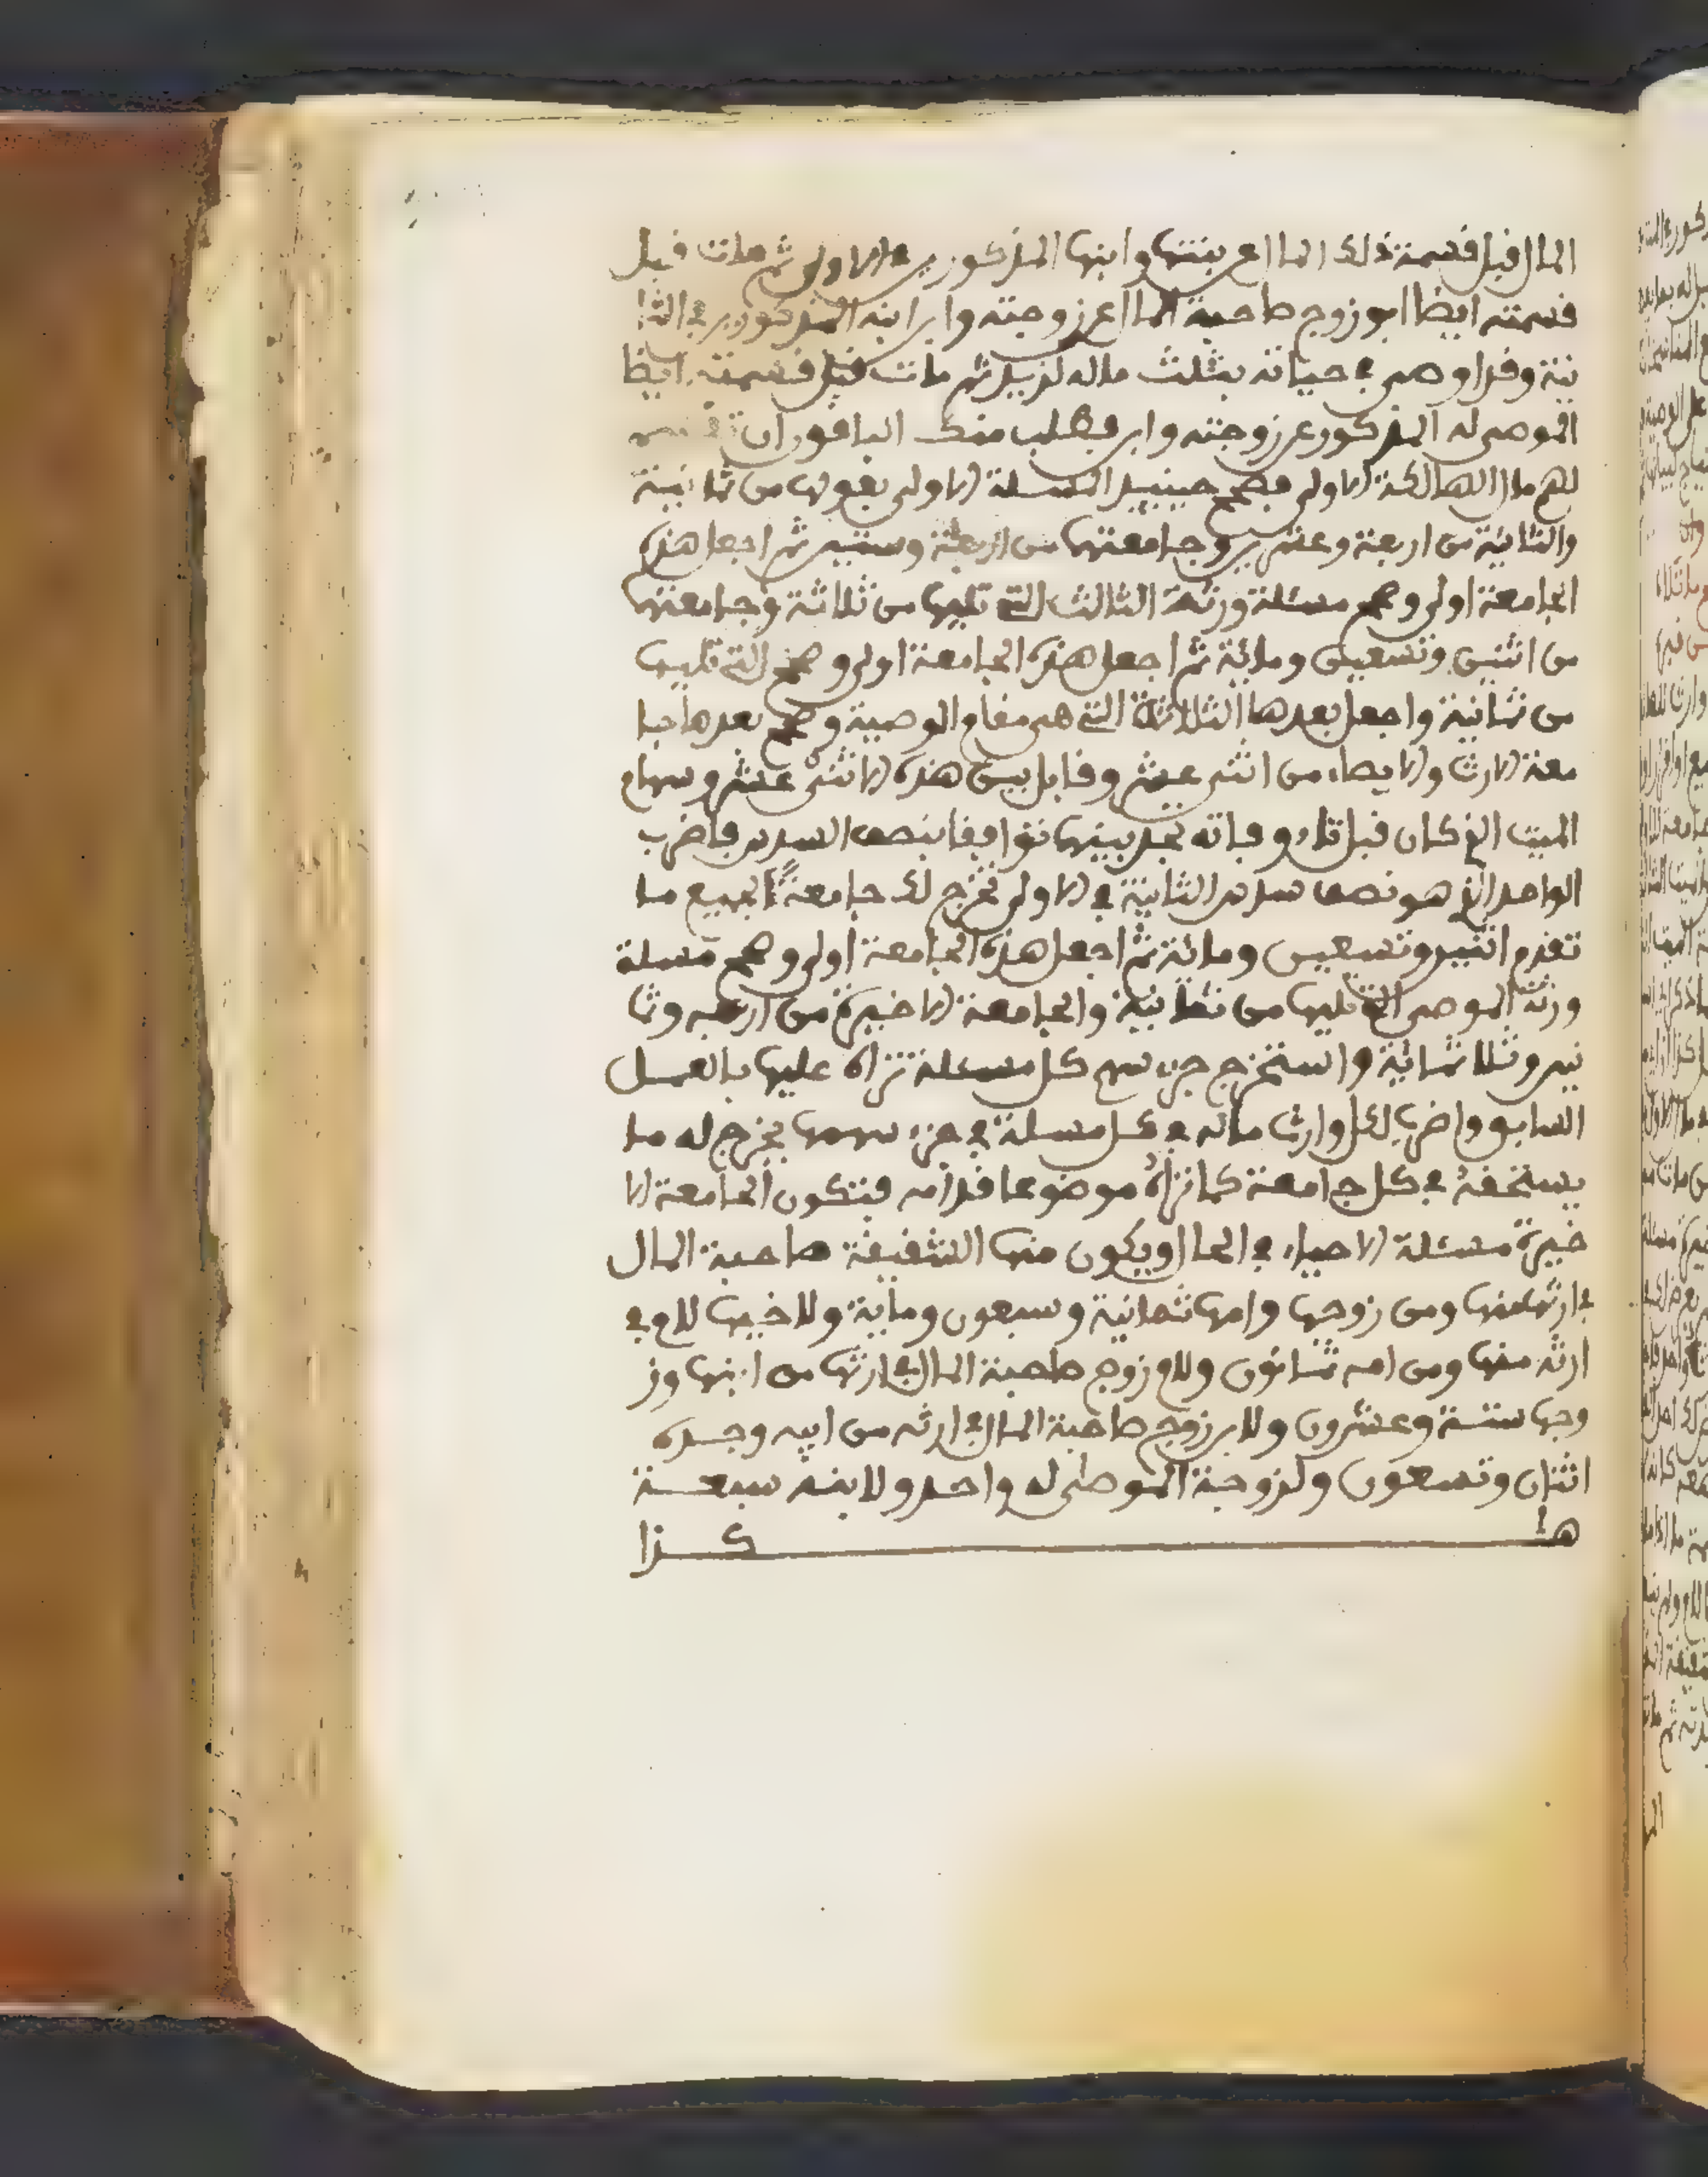 المال قبل قسمة ذلك المال عن بنتها وابنها المذكورين في الاولى ثم مات قبل
قسمته ايضا ابو زوج صاحبة المال عن زوجته وابن ابنه المذكورين في الثا
نية وقد اوصى في حياته بثلث ماله لزيد ثم مات قبل قسمته ايضا
الموصى له المذكور عن زوجته وابن فطلب منك الباقون ان
لهم مال الهالكة الاولى فصحح حينئذ المسئلة الاولى بعولها من ثمانية
والثانية من اربعة وعشرين وجامعتها من اربعة وستين ثم اجعل هذه
الجامعة اولى وصحح مسئلة ورثة الثالث التي تليها من ثلاثة وجامعتها
من اثنين وتسعين ومائة ثم اجعل هذه الجامعة اولى وصحح التي تليها
من ثمانية واجعل بعدها الثلاثة التي هي مقام الوصية وصحح بعدها جا
معة الارث والايصاء من اثنى عشر وقابل بين هذه الاثنى عشر وسهام
الميت الذي كان قبل تلك وفاته تجد بينها توافقا بنصف السدس فاضرب
الواحد الذي هو نصف سدس الثانية في الاولى تخرج لك جامعة لجميع ما
تقدم اثنين وتسعين ومائة ثم اجعل هذه الجامعة اولى وصحح مسئلة
ورثة الموصى التي تليها من ثمانية والجامعة الاخيرة من اربعة وثما
نين وثلاثمائة واستخرج جزء سهم كل مسئلة تراه عليها بالعمل
السابق واضرب لكل وارث ماله في كل مسئلة في جزء سهمها يخرج له ما
يستحقه في كل جامعة كما تراه موضوعا قدامه فتكون الجامعة الا
خيرة مسئلة الاحياء في الحال ويكون منها الشقيقة صاحبة المال
في ارثها منها ومن زوجها وامها ثمانية وسبعون ومائة ولاخيها للام في
ارثه منها ومن امه ثمانون ولام زوج صاحبة المال في ارثها من ابنها وز
وجها ستة وعشرون ولابن زوج صاحبة المال في ارثه من ابيه وجده
اثنان وتسعون ولزوجة الموصى له واحد ولابنه سبعة
هكذا